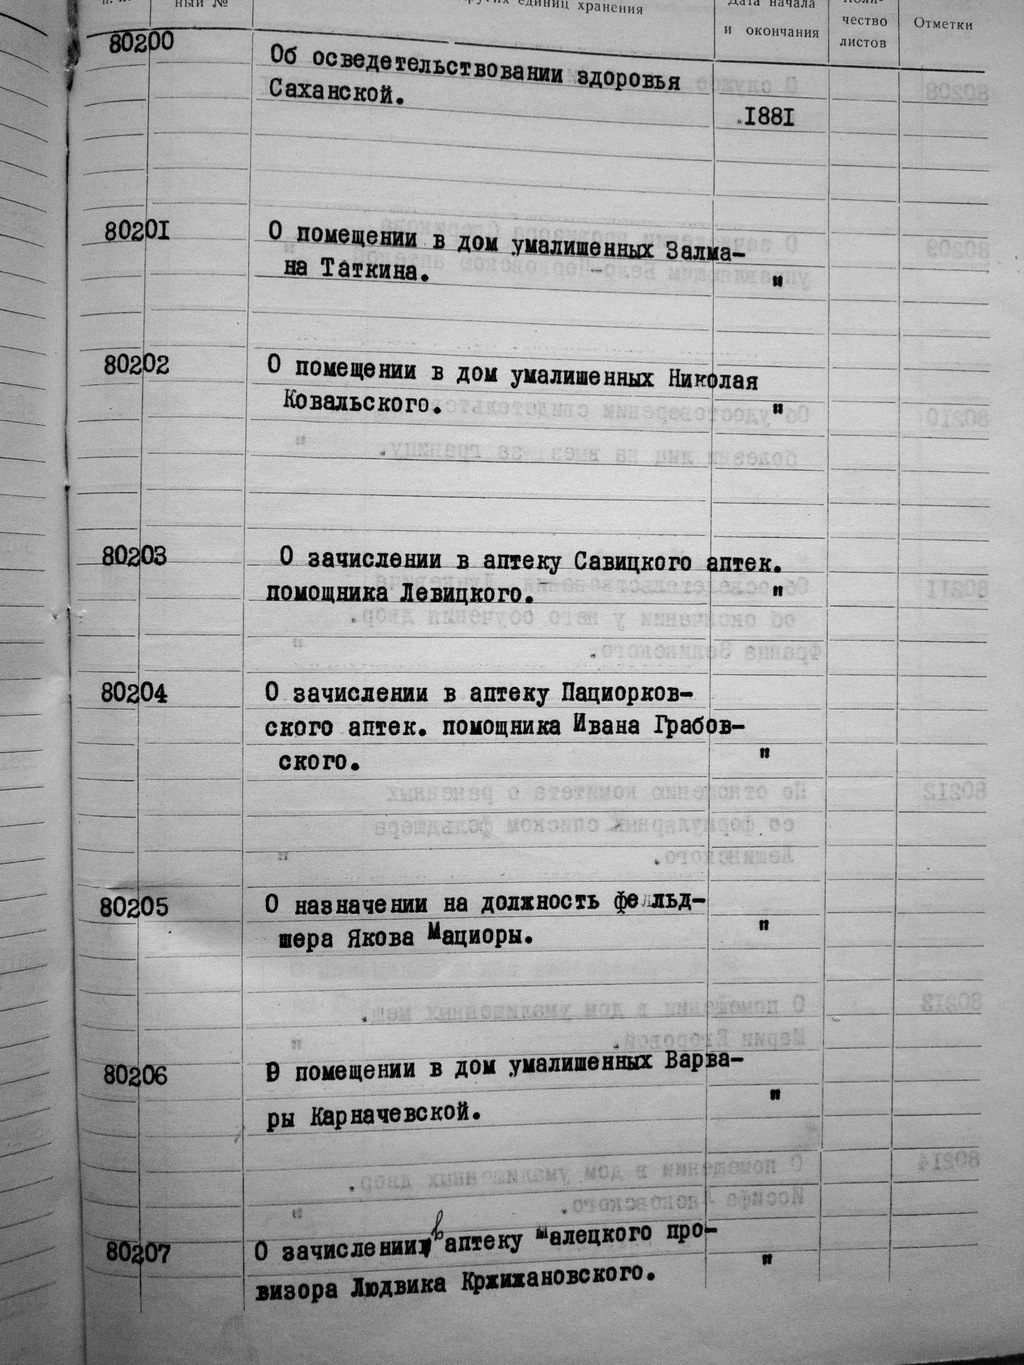 ный №
других единиц хранения
Дата начала
и окончания
чество
листов
Отметки
80200
Об осведетельствовании здоровья
Саханской.
1881
80201
О помещении в дом умалишенных Залма-
на Таткина. "
80202
О помещении в дом умалишенных Николая
Ковальского. "
80203
О зачислении в аптеку Савицкого аптек.
помощника Левицкого. "
80204
О зачислении в аптеку Пациорков-
ского аптек. помощника Ивана Грабов-
ского. "
80205
О назначении на должность фельд-
шера Якова Мациоры. "
80206
О помещении в дом умалишенных Варва-
ры Карначевской. "
80207
О зачислении в аптеку Малецкого про-
визора Людвика Кржижановского. "